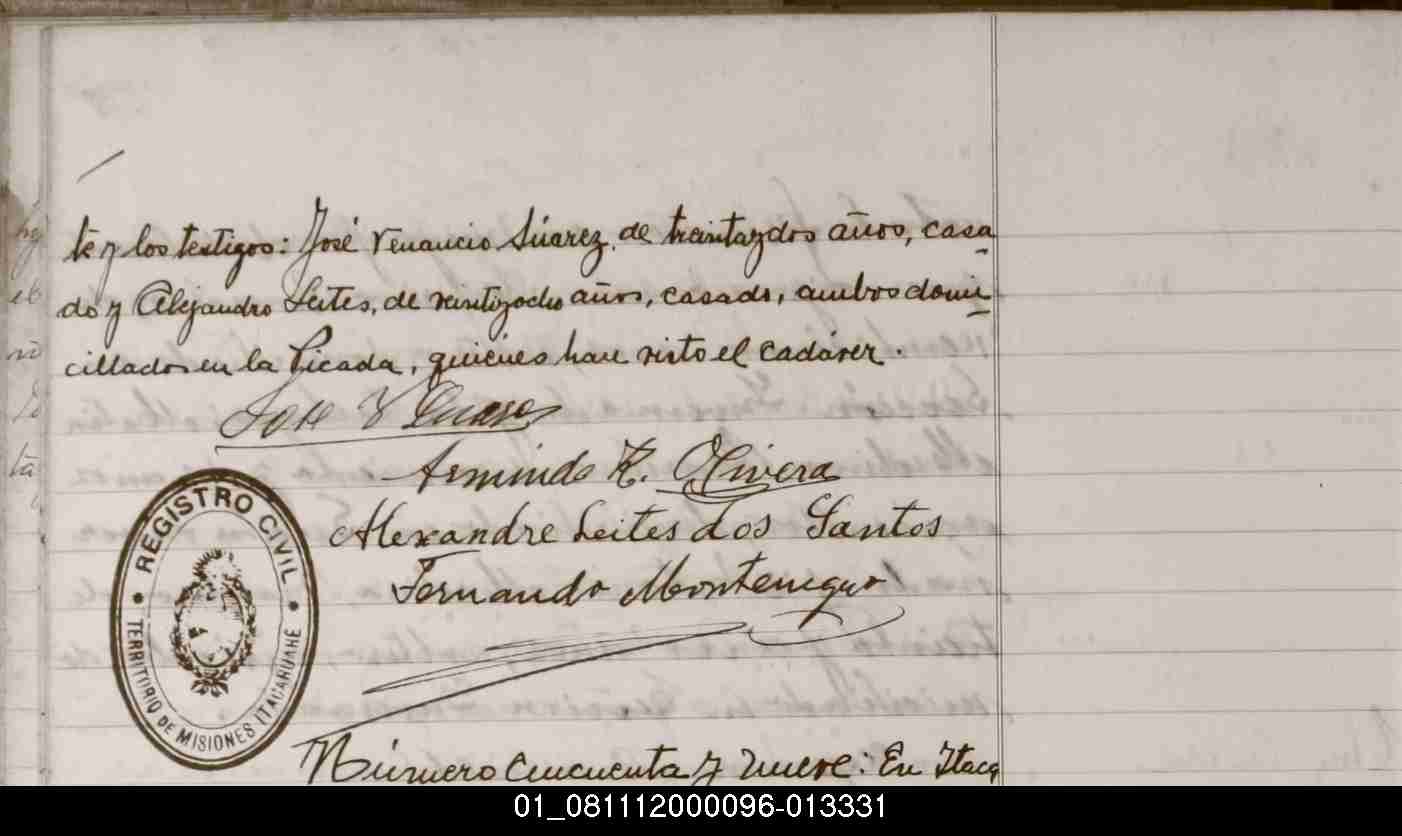 te y los testigos: José Venancio Súarez, de treintaydos años, casa
do y Alejandro Leites, de veintiyocho años, casado, ambos domi
cillados en la Picada, quiénes han visto el cadáver.
José V Suarez
Armindo R. Olivera
Alexandre Leites dos Santos
Fernando Montenegro
REGISTRO CIVIL
TERRITORIO DE MISIONES ITACARUARÉ
Número Cincuenta y nueve: En Itaca
01_081112000096-013331